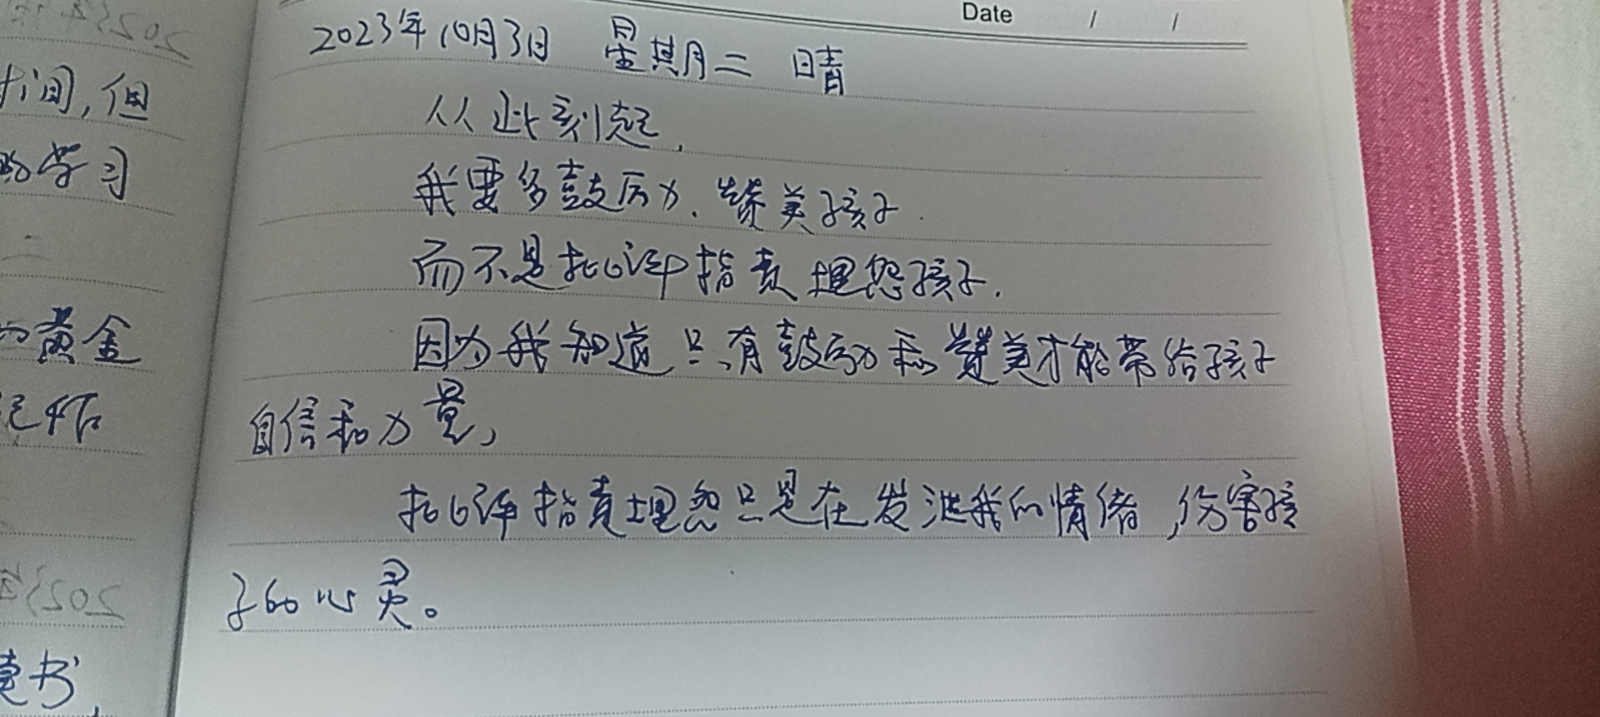 Date / /
2023年10月3日 星期二 晴
从此刻起,
我要多鼓励、赞美孩子.
而不是批评指责埋怨孩子.
因为我知道只有鼓励和赞美才能带给孩子
自信和力量,
批评指责埋怨只是在发泄我的情绪,伤害孩
子的心灵。
时间,但
的学习
的黄金
书,